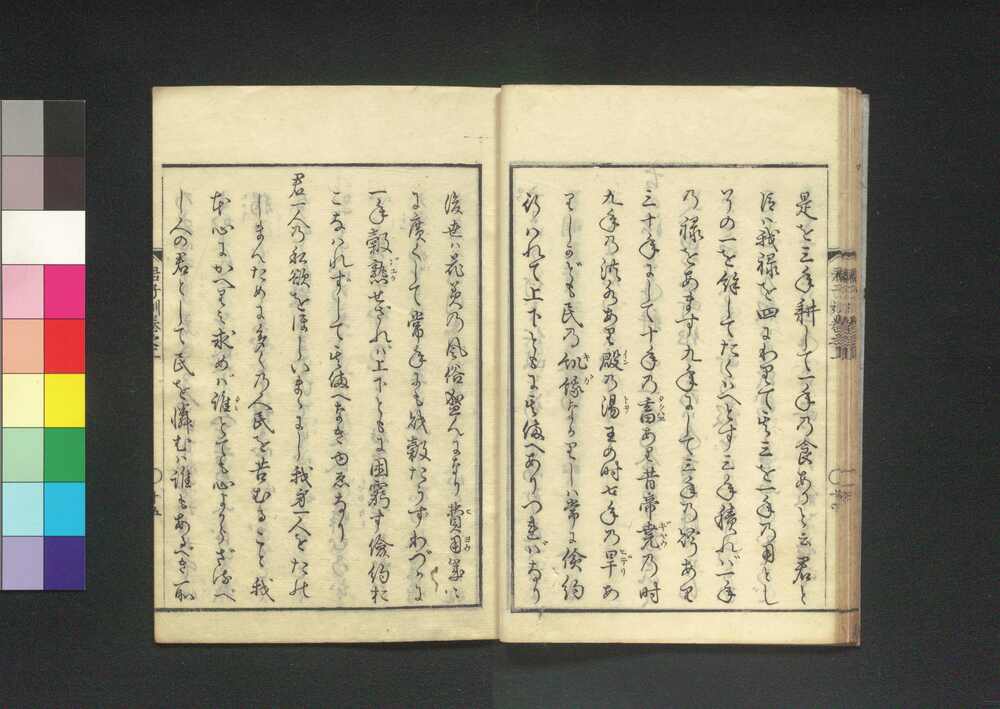 是を三年耕して一年の食ありと云君と
臣は我禄を四にわりて其三を一年の用とし
その一を餘してたくはへとす三年積れば一年
の禄をあます九年にして三年の貯あり
三十年にして十年の畜あり昔帝堯の時
九年の洪水あり殷の湯王の時七年の旱あ
りしかども民の飢餓なかりしは常に倹約
行はれて上下ともに其備へありつればなり
後世は花美の風俗盛んになり費用
に廣くして常年にも銭穀たらずわづかに
一年穀熟せざれは上下ともに困窮す倹約お
こなはれずして其備へなきゆゑなり
君一人の私欲をほしいまゝにし我身一人をたの
しまんために多くの人民を苦むること我
本心にかへりみ求めは誰とても心よからざるべ
し人の君として民を憐むは誰もあるべき
君子訓巻之上